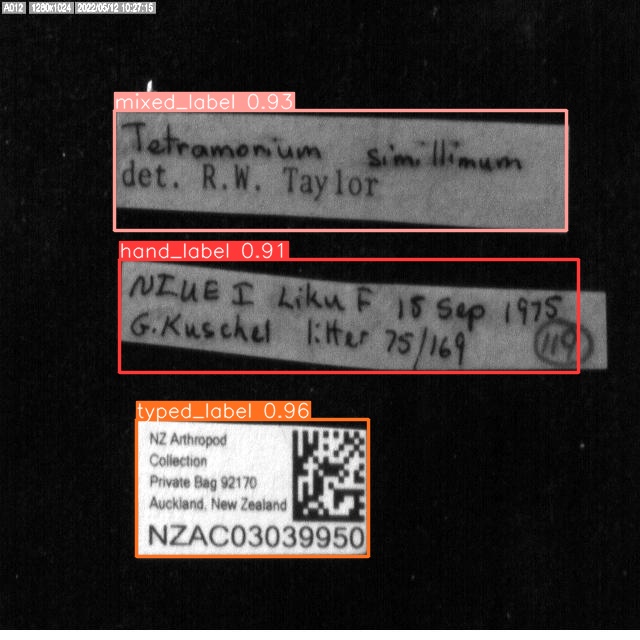 A012 1280x1024 2022/05/12 10:27:15
mixed_label 0.93
Tetramorium simillimum
det. R.W. Taylor
hand_label 0.91
NIUE I Liku F 18 Sep 1975
G. Kuschel litter 75/169 119
typed_label 0.96
NZ Arthropod
Collection
Private Bag 92170
Auckland, New Zealand
NZAC03039950